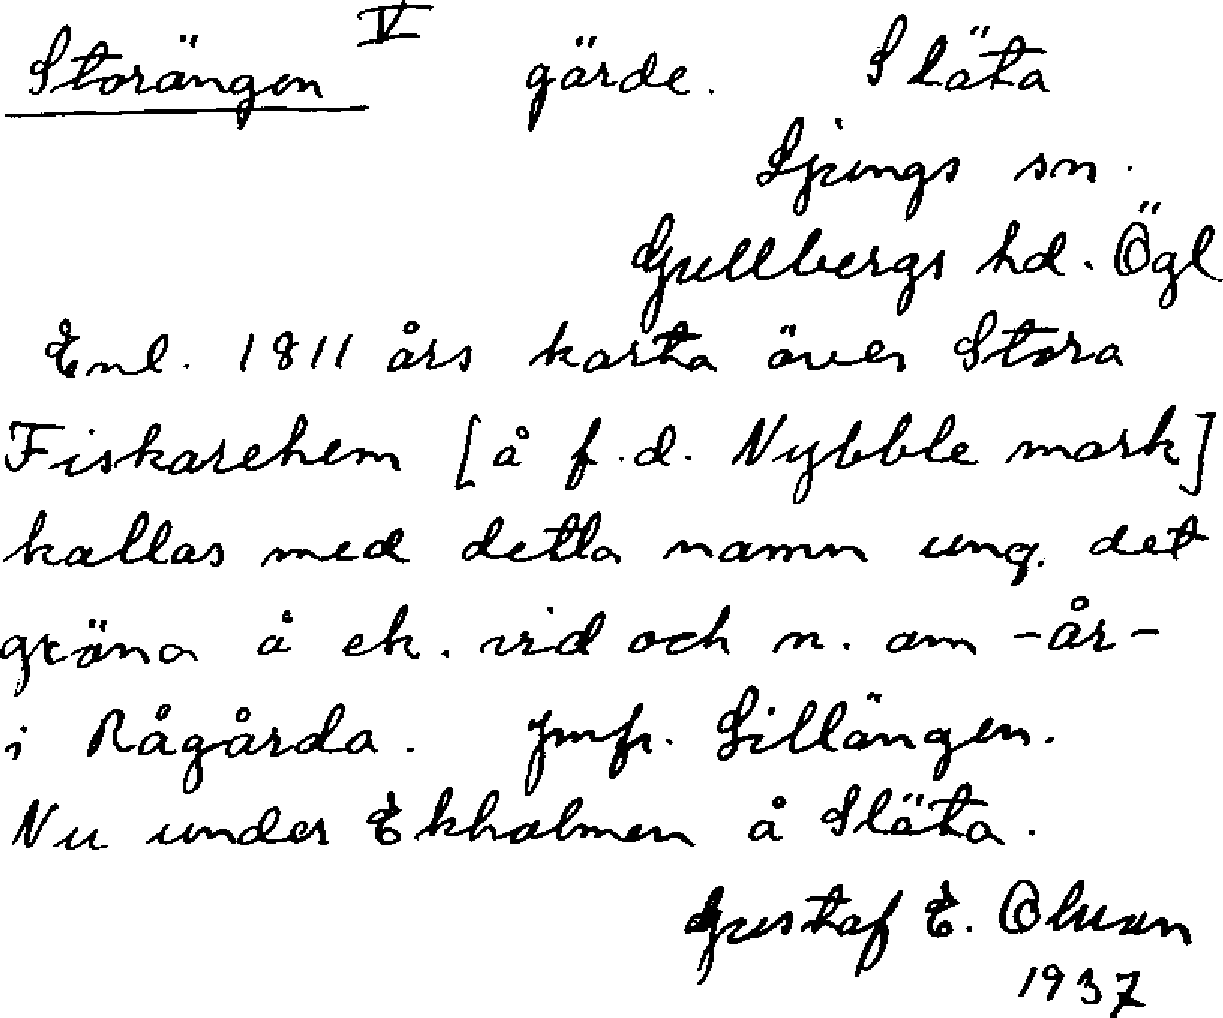 Storängen V gärde. Släta
Ljungs sn.
Gullbergs hd. Ögl
Enl. 1811 års karta över Stora
Fiskarehem [å f.d. Nybble mark]
kallas med detta namn ung. det
gröna å ek. vid och n. om -år-
i Rågårda. Jmfr. Lillängen.
Nu under Ekholmen å Släta.
Gustaf E. Olsson
1937